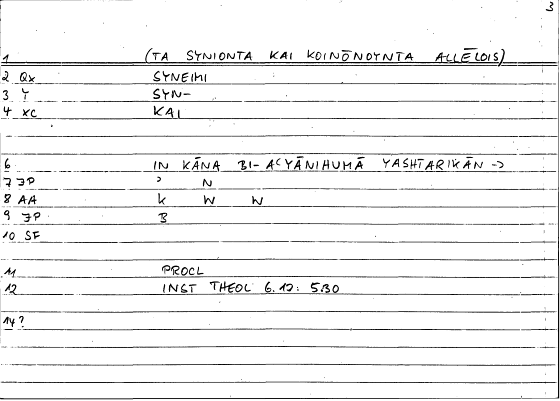 3
1 (TA SYNIONTA KAI KOINŌNOYNTA ALLĒLOIS)
2 QX SYNEIMI
3 Y SYN-
4 XC KAI
6 IN KĀNA BI-AʿYĀNIHUMĀ YASHTARIKĀN ->
7 JP ʾ N
8 AA K W N
9 JP B
10 SF
11 PROCL
12 INST THEOL 6.12: 5.30
14?